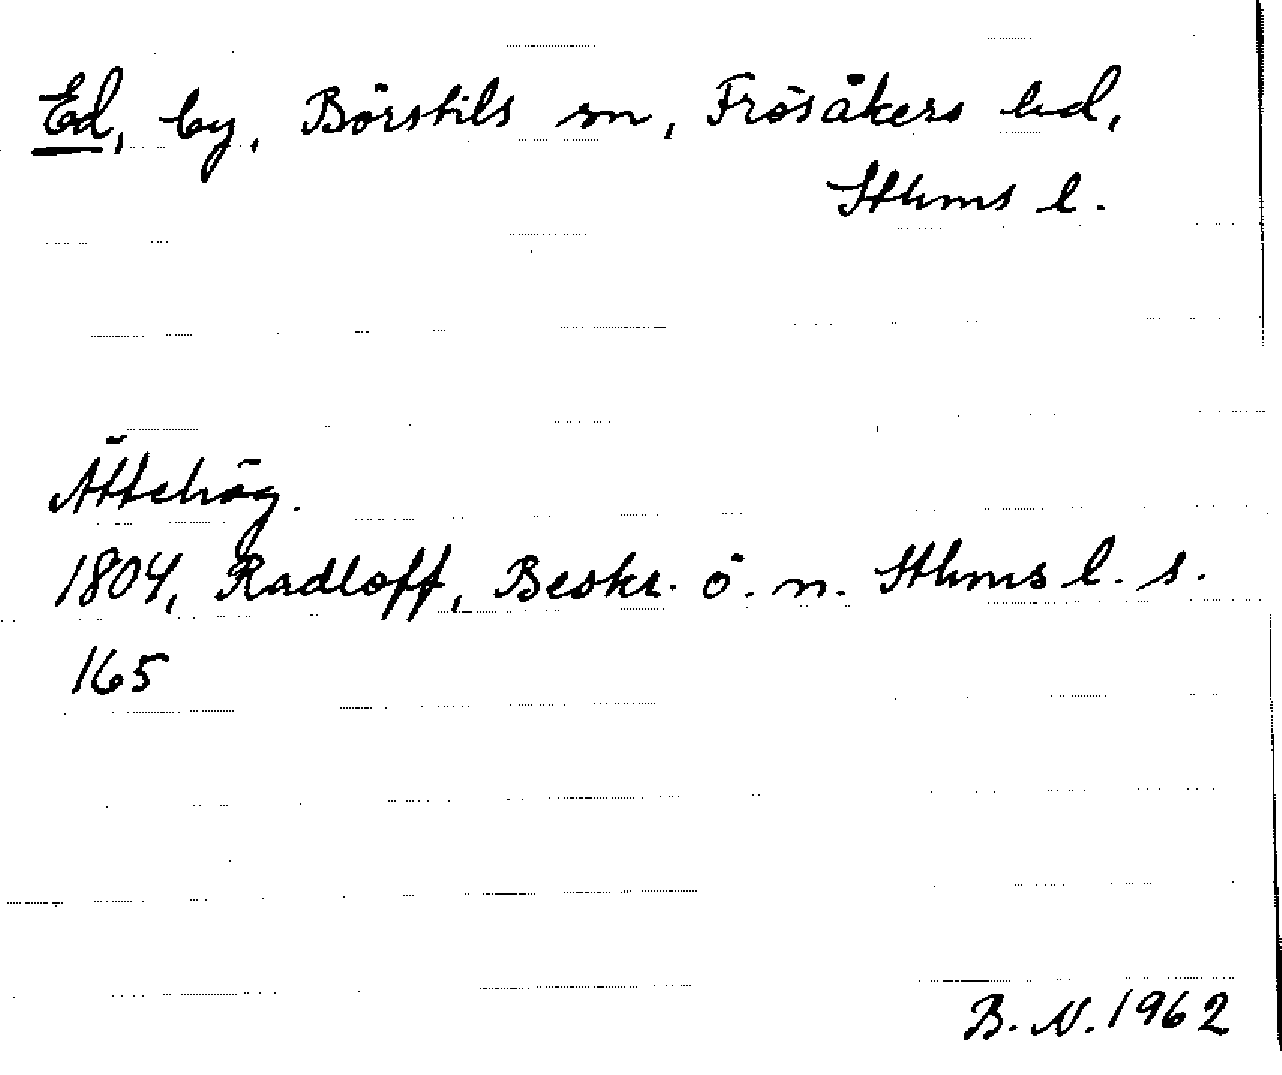 Ed, by, Börstils sn, Frösåkers hd,
Sthms l.
Ättehög.
1804, Radloff, Beskr. ö. n. Sthms l. s.
165
B. N. 1962